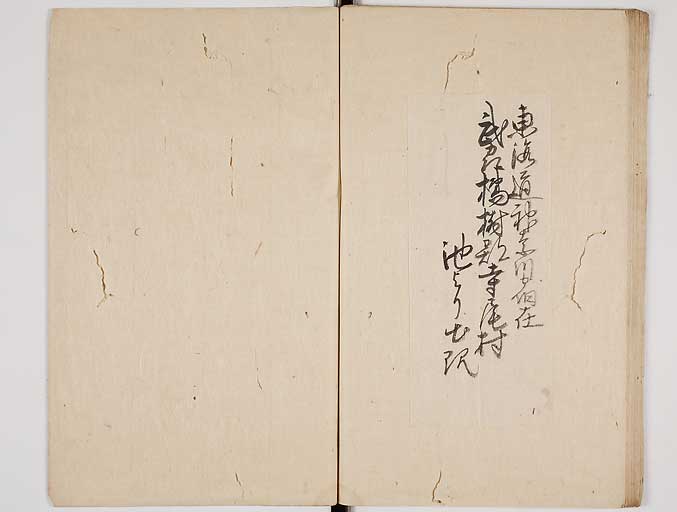 東海道神奈川宿在
武州橘樹郡寺尾村
池より出現